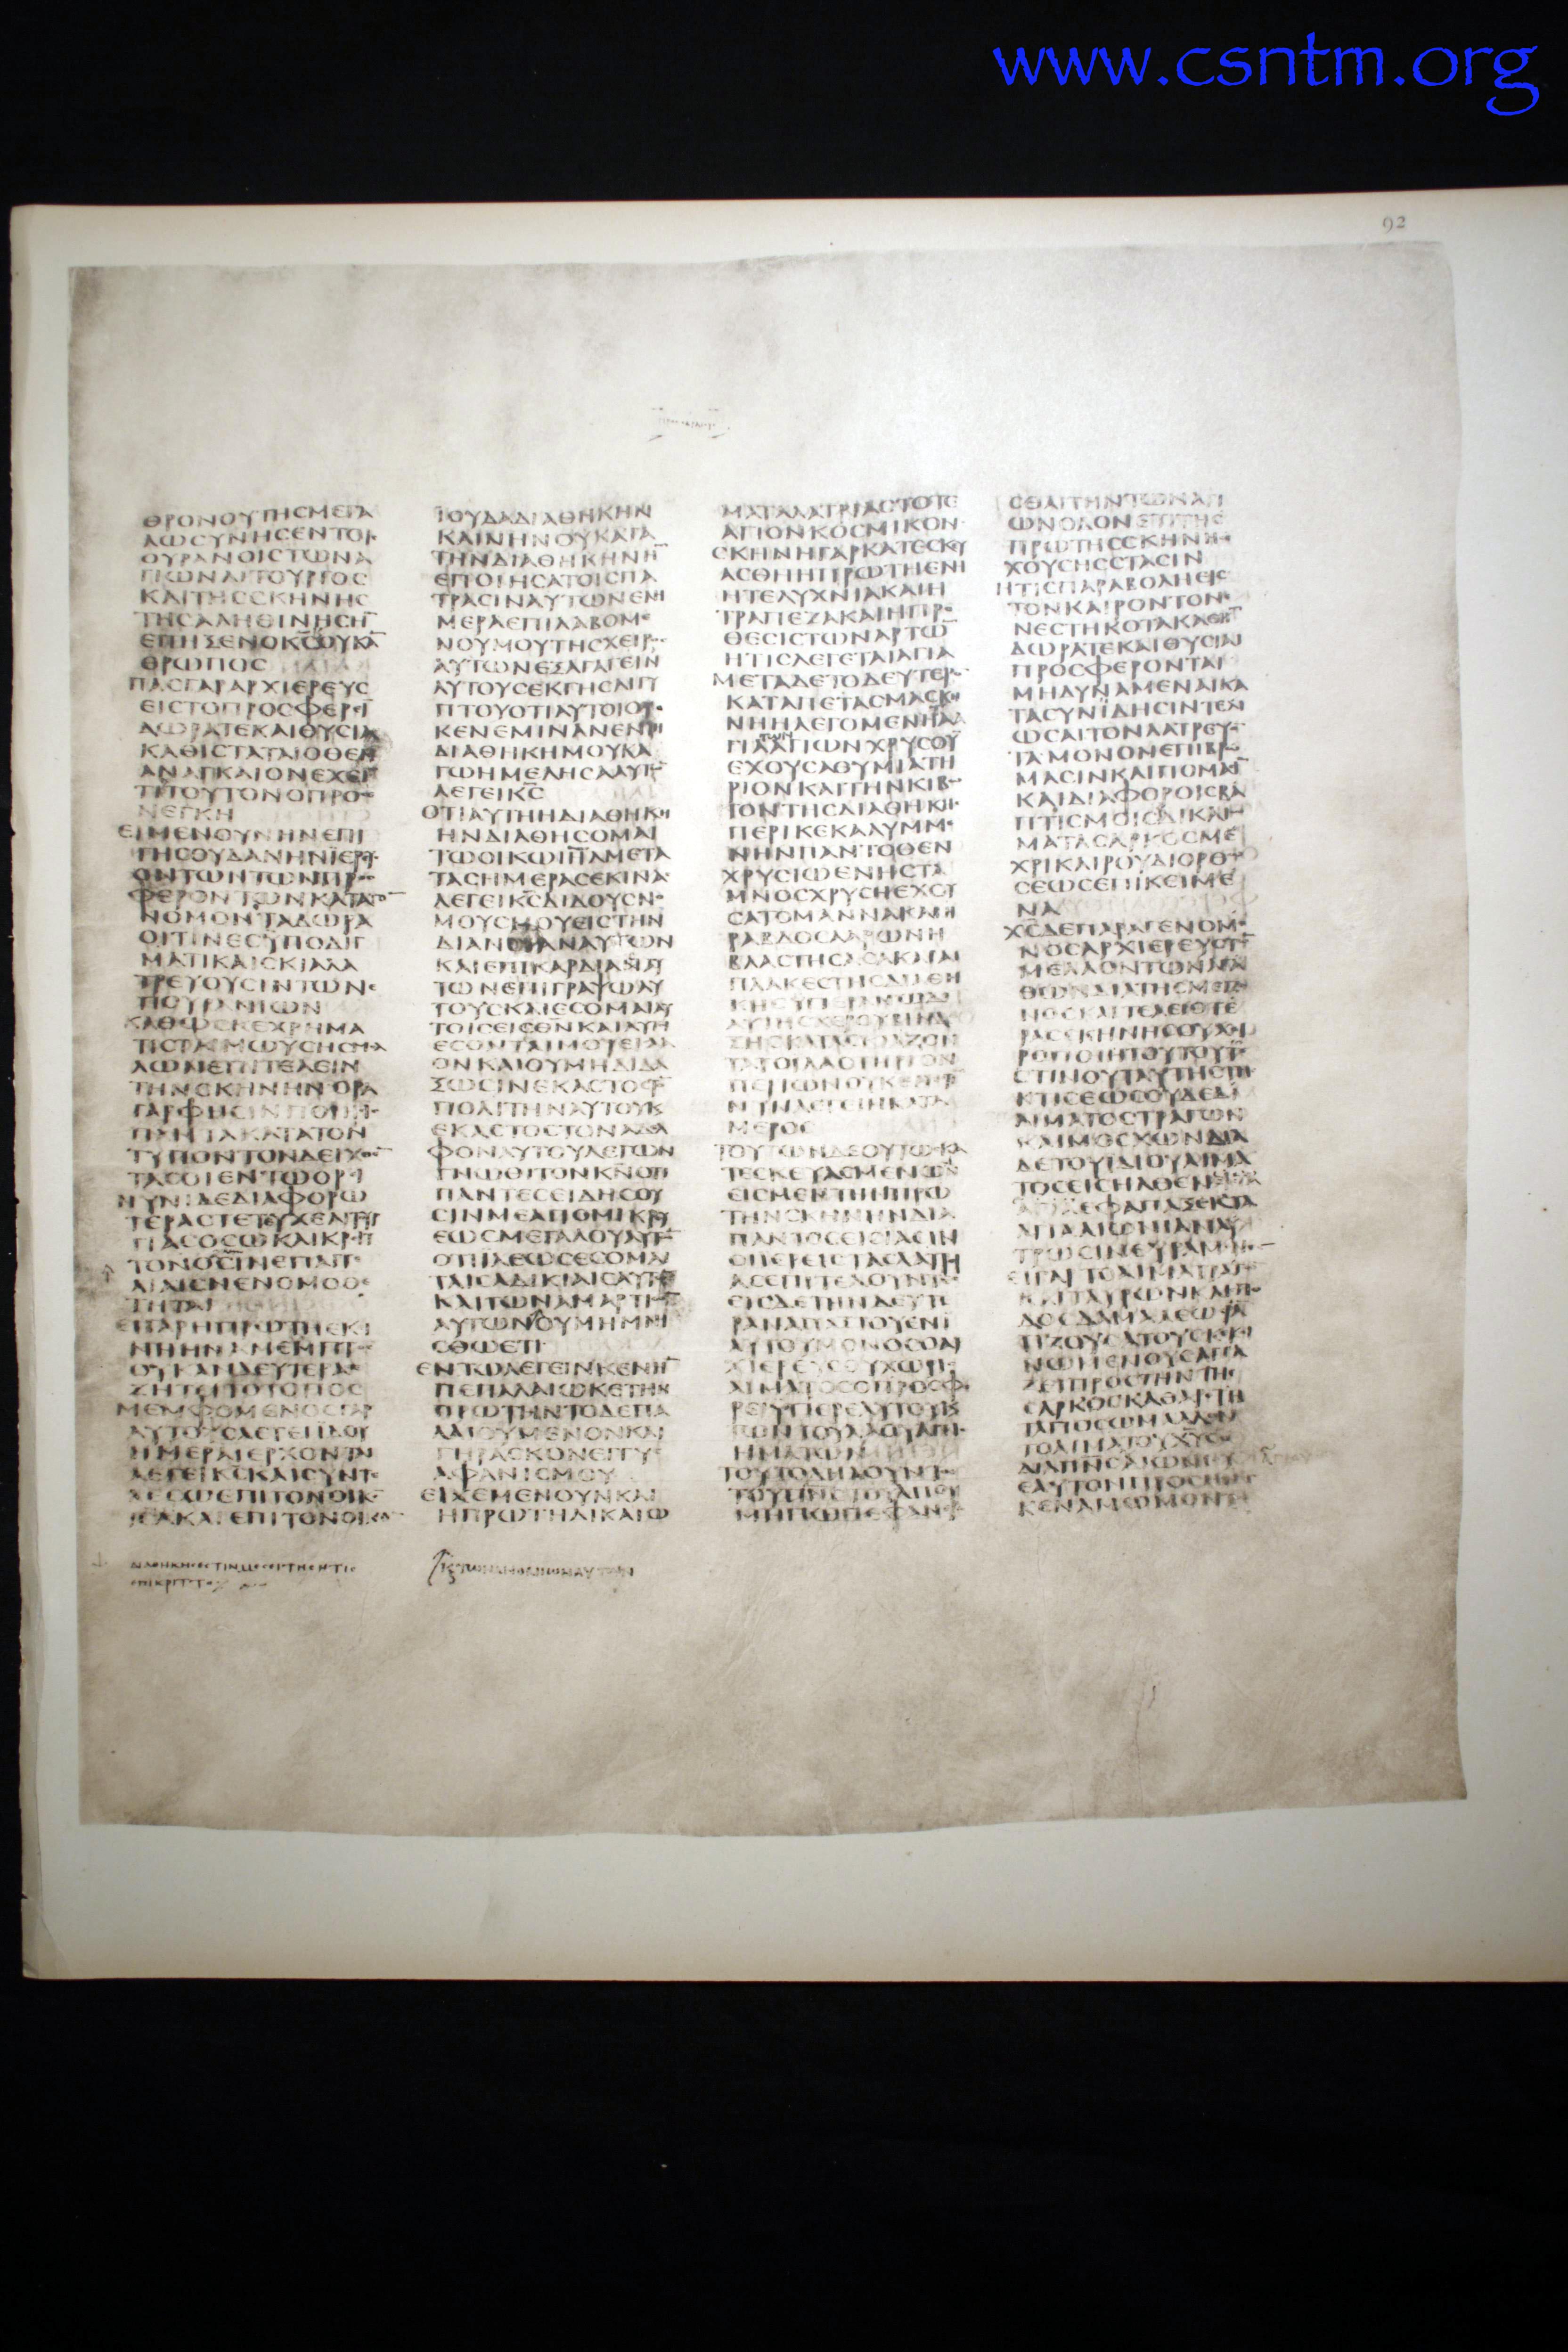 www.csntm.org
92
ΘΡΟΝΟΥΤΗCΜΕΓΑ
ΛΩCΥΝΗCΕΝΤΟΙ
ΟΥΡΑΝΟΙCΤΩΝΑ
ΓΙΩΝΛΙΤΟΥΡΓΟC
ΚΑΙΤΗCCΚΗΝΗC
ΤΗCΑΛΗΘΙΝΗCΗ
ΕΠΗΞΕΝΟΚCΟΥΚΑ
ΘΡΩΠΟC
ΠΑCΓΑΡΑΡΧΙΕΡΕΥC
ΕΙCΤΟΠΡΟCΦΕΡΙ
ΔΩΡΑΤΕΚΑΙΘΥCΙΑ
ΚΑΘΙCΤΑΤΑΙΟΘΕΝ
ΑΝΑΓΚΑΙΟΝΕΧΕΙ
ΤΙΤΟΥΤΟΝΟΠΡΟ
ΝΕΓΚΗ
ΕΙΜΕΝΟΥΝΗΝΕΠΙ
ΓΗCΟΥΔΑΝΗΝΙΕΡΥ
ΟΝΤΩΝΤΩΝΠΡ
ΦΕΡΟΝΤΩΝΚΑΤΑΤΟ
ΝΟΜΟΝΤΑΔΩΡΑ
ΟΙΤΙΝΕCΫΠΟΔΙΓ
ΜΑΤΙΚΑΙCΚΙΑΛΑ
ΤΡΕΥΟΥCΙΝΤΩΝ
ΠΟΥΡΑΝΙΩΝ
ΚΑΘΩCΚΕΧΡΗΜΑ
ΤΙCΤΑΙΜΩΥCΗCΜΕ
ΛΩΝΕΠΙΤΕΛΕΙΝ
ΤΗΝCΚΗΝΗΝΟΡΑ
ΓΑΡΦΗCΙΝΠΟΙΗ
ΠΑΝΤΑΚΑΤΑΤΟΝ
ΤΥΠΟΝΤΟΝΔΕΙΧΘ
ΤΑCΟΙΕΝΤΩΟΡΙ
ΝΥΝΙΔΕΔΙΑΦΟΡΩ
ΤΕΡΑCΤΕΤΥΧΕΛΙΤΥΡ
ΓΙΑCΟCΩΚΑΙΚΡΙΤ
ΤΟΝΟCΕΙΝΕΠΑΓΓ
ΛΙΑΙCΝΕΝΟΜΟΘ
ΤΗΤΑΙ
ΕΙΓΑΡΗΠΡΩΤΗΕΚΙ
ΝΗΗΝΑΜΕΜΠΤ
ΟΥΚΑΝΔΕΥΤΕΡΑ
ΖΗΤΙΤΟΤΟΠΟC
ΜΕΜΦΟΜΕΝΟCΓΑΡ
ΑΥΤΟΥCΛΕΓΕΙΪΔΟΥ
ΗΜΕΡΑΙΕΡΧΟΝΤΑΙ
ΛΕΓΕΙΚCΚΑΙCΥΝΤ
ΛΕCΩΕΠΙΤΟΝΟΙΚ
ΙCΑΚΑΙΕΠΙΤΟΝΟΙΚΟ
ΙΟΥΔΑΔΙΑΘΗΚΗΝ
ΚΑΙΝΗΝΟΥΚΑΤΑ
ΤΗΝΔΙΑΘΗΚΗΝΗ
ΕΠΟΙΗCΑΤΟΙCΠΑ
ΤΡΑCΙΝΑΥΤΩΝΕΝΗ
ΜΕΡΑΕΠΙΛΑΒΟΜ
ΝΟΥΜΟΥΤΗCΧΕΙΡ
ΑΥΤΩΝΕΞΑΓΑΓΕΙΝ
ΑΥΤΟΥCΕΚΓΗCΑΙΓΥ
ΠΤΟΥΟΤΙΑΥΤΟΙΟΥ
ΚΕΝΕΜΙΝΑΝΕΝΤΗ
ΔΙΑΘΗΚΗΜΟΥΚΑ
ΓΩΗΜΕΛΗCΑΑΥΤ
ΛΕΓΕΙΚC
ΟΤΙΑΥΤΗΗΔΙΑΘΗΚΗ
ΗΝΔΙΑΘΗCΟΜΑΙ
ΤΩΟΙΚΩΙΗΛΜΕΤΑ
ΤΑCΗΜΕΡΑCΕΚΙΝΑ
ΛΕΓΕΙΚCΔΙΔΟΥCΝ
ΜΟΥCΜΟΥΕΙCΤΗΝ
ΔΙΑΝΟΙΑΝΑΥΤΩΝ
ΚΑΙΕΠΙΚΑΡΔΙΑΑΥ
ΤΩΝΕΠΙΓΡΑΨΩΑΥ
ΤΟΥCΚΑΙΕCΟΜΑΙΑΥ
ΤΟΙCΕΙCΘΝΚΑΙΑΥΤΟΙ
ΕCΟΝΤΑΙΜΟΙΕΙCΛΑ
ΟΝΚΑΙΟΥΜΗΔΙΔΑ
ΞΩCΙΝΕΚΑCΤΟC
ΠΟΛΙΤΗΝΑΥΤΟΥΚ
ΕΚΑCΤΟCΤΟΝΑΔΕΛ
ΦΟΝΑΥΤΟΥΛΕΓΩΝ
ΓΝΩΘΙΤΟΝΚΝΟΤΙ
ΠΑΝΤΕCΕΙΔΗCΟΥ
CΙΝΜΕΑΠΟΜΙΚΡΥ
ΕΩCΜΕΓΑΛΟΥΑΥΤ
ΟΤΙΪΛΕΩCΕCΟΜΑΙ
ΤΑΙCΑΔΙΚΙΑΙCΑΥΤΩ
ΚΑΙΤΩΝΑΜΑΡΤΙ
ΑΥΤΩΝΟΥΜΗΜΝΗ
CΘΩΕΤΙ
ΕΝΤΩΛΕΓΕΙΝΚΕΝΗ
ΠΕΠΑΛΑΙΩΚΕΤΗΝ
ΠΡΩΤΗΝΤΟΔΕΠΑ
ΛΑΙΟΥΜΕΝΟΝΚΑΙ
ΓΗΡΑCΚΟΝΕΓΓΥC
ΑΦΑΝΙCΜΟΥ
ΕΙΧΕΜΕΝΟΥΝΚΑΙ
ΗΠΡΩΤΗΔΙΚΑΙΩ
ΜΑΤΑΛΑΤΡΙΑCΤΟΤΕ
ΑΓΙΟΝΚΟCΜΙΚΟΝ
CΚΗΝΗΓΑΡΚΑΤΕCΚΕΥ
ΑCΘΗΗΠΡΩΤΗΕΝΗ
ΗΤΕΛΥΧΝΙΑΚΑΙΗ
ΤΡΑΠΕΖΑΚΑΙΗΠΡ
ΘΕCΙCΤΩΝΑΡΤΩ
ΗΤΙCΛΕΓΕΤΑΙΑΓΙΑ
ΜΕΤΑΔΕΤΟΔΕΥΤΕΡ
ΚΑΤΑΠΕΤΑCΜΑCΚΗ
ΝΗΗΛΕΓΟΜΕΝΗΑ
ΓΙΑΑΓΙΩΝΧΡΥCΟΥ
ΕΧΟΥCΑΘΥΜΙΑΤΗ
ΡΙΟΝΚΑΙΤΗΝΚΙΒ
ΤΟΝΤΗCΔΙΑΘΗΚΗ
ΠΕΡΙΚΕΚΑΛΥΜΜ
ΝΗΝΠΑΝΤΟΘΕΝ
ΧΡΥCΙΩΕΝΗCΤΑ
ΜΝΟCΧΡΥCΗΕΧΟΥ
CΑΤΟΜΑΝΝΑΚΑΙΗ
ΡΑΒΔΟCΑΑΡΩΝΗ
ΒΛΑCΤΗCΑCΑΚΑΙΑΙ
ΠΛΑΚΕCΤΗCΔΙΑΘΗ
ΜΕΡΟC
ΤΟΥΤΩΝΔΕΟΥΤΩΚΑ
ΤΕCΚΕΥΑCΜΕΝΩΝ
ΕΙCΜΕΝΤΗΝΠΡΩ
ΤΗΝCΚΗΝΗΝΔΙΑ
ΠΑΝΤΟCΕΙCΙΑCΙΝ
ΟΙΙΕΡΕΙCΤΑCΛΑΤΡΙ
ΑCΕΠΙΤΕΛΟΥΝΤ
ΕΙCΔΕΤΗΝΔΕΥΤΕ
ΡΑΝΑΠΑΞΤΟΥΕΝΙ
ΑΥΤΟΥΜΟΝΟCΟΑΡ
ΧΙΕΡΕΥCΟΥΧΩΡΙ
ΑΙΜΑΤΟCΟΠΡΟCΦ
ΡΕΙΥΠΕΡΕΑΥΤΟΥΚ
ΤΩΝΤΟΥΛΑΟΥΑΓΝ
ΗΜΑΤΩΝ
ΤΟΥΤΟΔΗΛΟΥΝΤ
ΤΟΥΠΝCΤΟΥΑΓΙΟΥ
ΜΗΠΩΠΕΦΑΝ
CΘΑΙΤΗΝΤΩΝΑΓΙ
ΩΝΟΔΟΝΕΤΙΤΗC
ΠΡΩΤΗCCΚΗΝΗ
ΧΟΥCΗCCΤΑCΙΝ
ΗΤΙCΠΑΡΑΒΟΛΗΕΙC
ΤΟΝΚΑΙΡΟΝΤΟΝ
ΝΕCΤΗΚΟΤΑΚΑΘΗ
ΔΩΡΑΤΕΚΑΙΘΥCΙΑΙ
ΠΡΟCΦΕΡΟΝΤΑΙ
ΜΗΔΥΝΑΜΕΝΑΙΚΑ
ΤΑCΥΝΪΔΗCΙΝΤΕΛΙ
ΩCΑΙΤΟΝΛΑΤΡΕΥ
ΤΑΜΟΝΟΝΕΠΙΒΡ
ΜΑCΙΝΚΑΙΠΟΜΑC
ΚΑΙΔΙΑΦΟΡΟΙCΒΑ
ΠΤΙCΜΟΙCΔΙΚΑΙΩ
ΜΑΤΑCΑΡΚΟCΜΕ
ΧΡΙΚΑΙΡΟΥΔΙΟΡΘΩ
CΕΩCΕΠΙΚΕΙΜΕ
ΝΑ
ΧCΔΕΠΑΡΑΓΕΝΟΜ
ΝΟCΑΡΧΙΕΡΕΥCΤ
ΜΕΛΛΟΝΤΩΝΑΓΑ
ΘΩΝΔΙΑΤΗCΜΕΙΖ
ΝΟCΚΑΙΤΕΛΕΙΟΤΕ
ΡΑCCΚΗΝΗCΟΥΧΙ
ΡΟΠΟΙΗΤΟΥΤΟΥΤ
CΤΙΝΟΥΤΑΥΤΗCΤΗC
ΚΤΙCΕΩCΟΥΔΕΔΙ
ΑΙΜΑΤΟCΤΡΑΓΩΝ
ΚΑΙΜΟCΧΩΝΔΙΑ
ΔΕΤΟΥΙΔΙΟΥΑΙΜΑ
ΤΟCΕΙCΗΛΘΕΝ
ΕΦΑΠΑΞΕΙCΤΑ
ΑΓΙΑΑΙΩΝΙΑΝΛΥ
ΤΡΩCΙΝΕΥΡΑΜ
ΕΙΓΑΡΤΟΑΙΜΑΤΡΑΓ
ΚΑΙΤΑΥΡΩΝΚΑΙCΠ
ΔΟCΔΑΜΑΛΕΩCΡΑ
ΤΙΖΟΥCΑΤΟΥCΚΕΚΙ
ΝΩΜΕΝΟΥCΑΓΙΑ
ΖΕΙΠΡΟCΤΗΝΤΗC
CΑΡΚΟCΚΑΘΑΡΟΤΗ
ΤΑΠΟCΩΜΑΛΛΟΝ
ΤΟΑΙΜΑΤΟΥΧΥΟC
ΔΙΑΠΝCΑΙΩΝΙΟΥ
ΕΑΥΤΟΝΠΡΟCΗΝΕ
ΚΕΝΑΜΩΜΟΝΤΩ